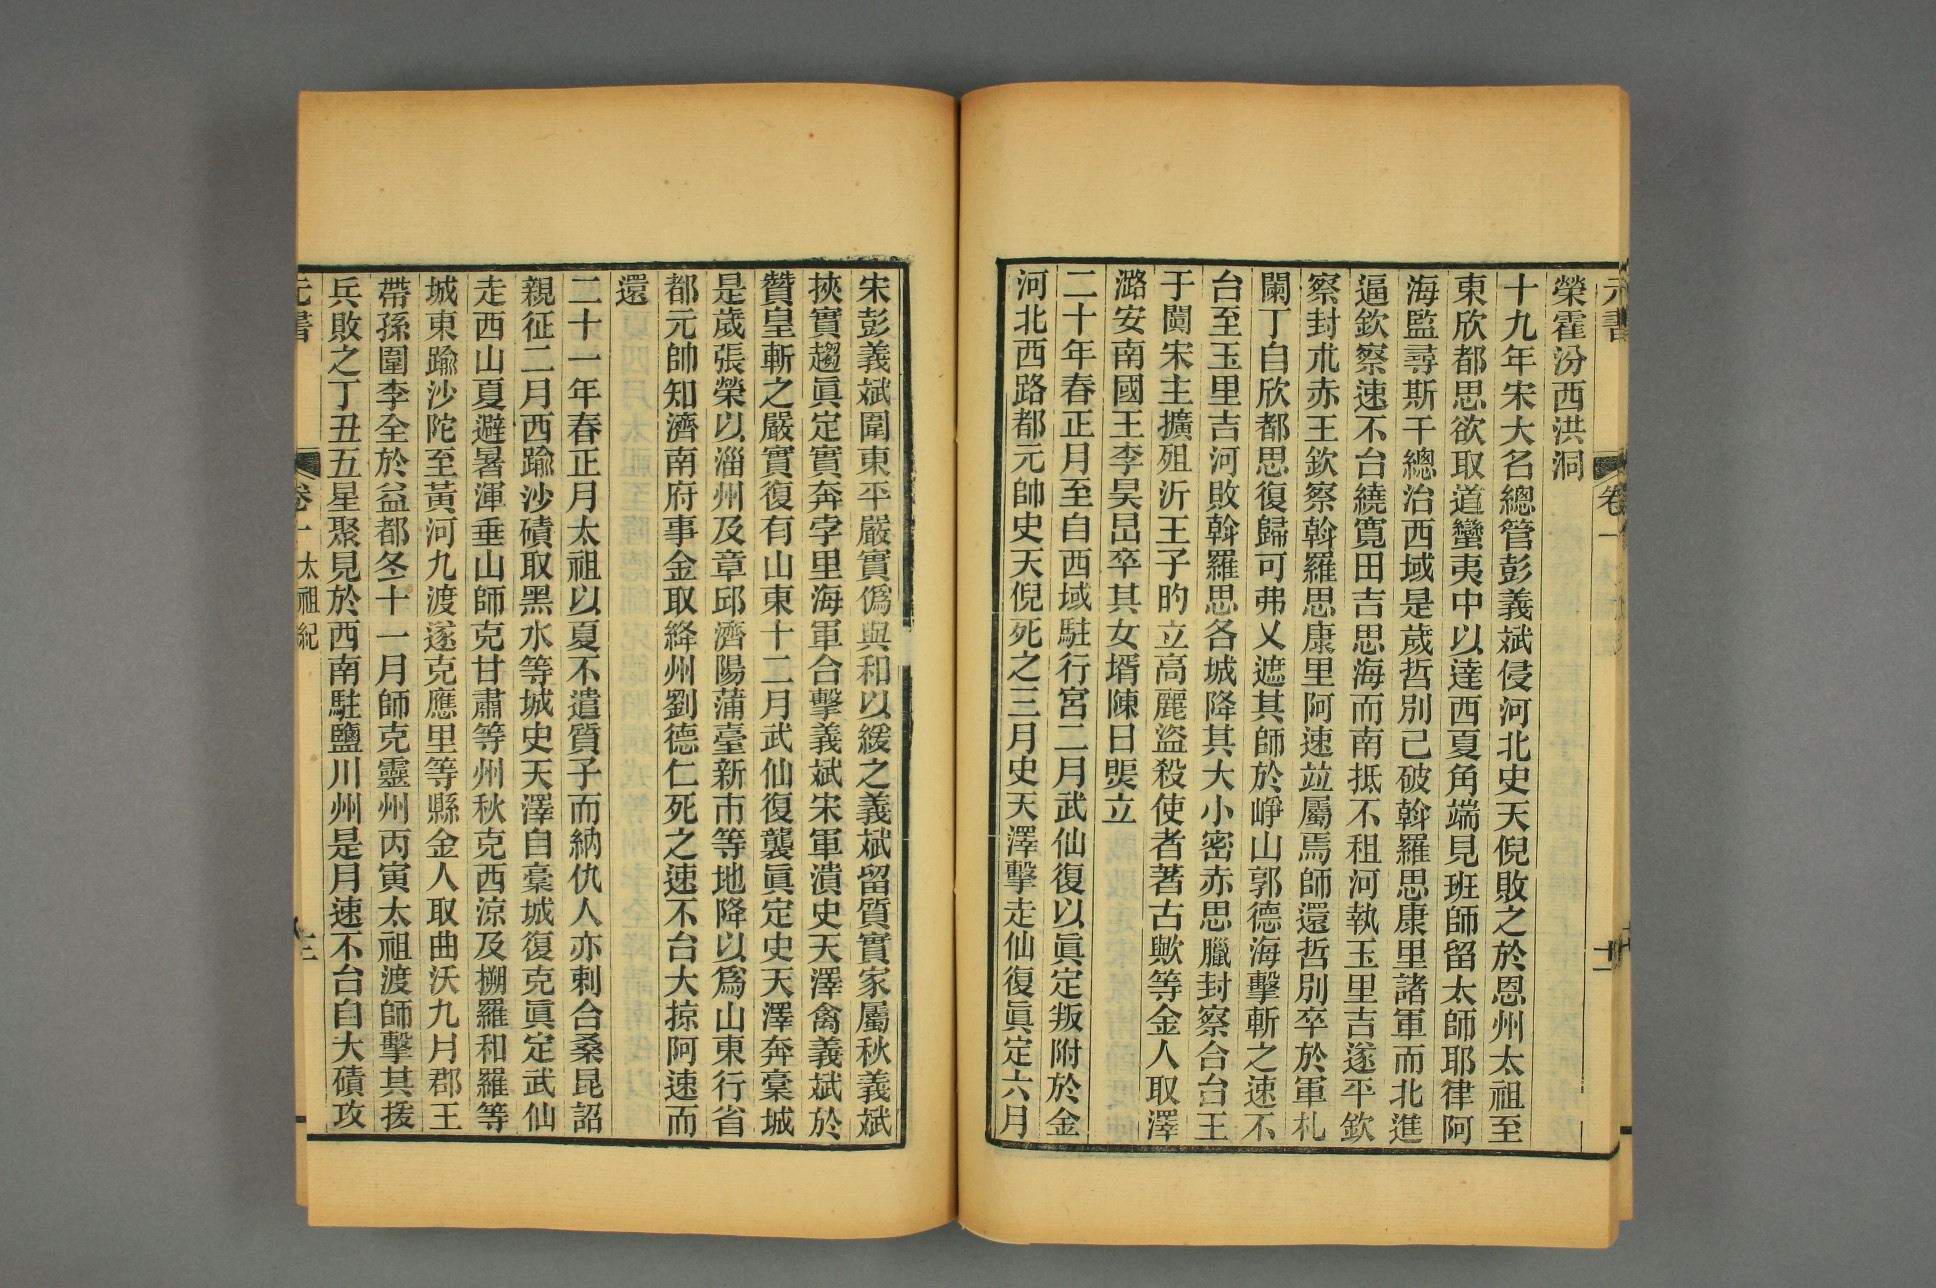 元書
卷一
十一
榮霍汾西洪洞
十九年宋大名總管彭義斌侵河北史天倪敗之於恩州太祖至
東欣都思欲取道蠻夷中以達西夏角端見班師留太師耶律阿
海監尋斯干總治西域是歲哲別已破斡羅思康里諸軍而北進
逼欽察速不台繞寬田吉思海而南抵不租河執玉里吉遂平欽
察封朮赤王欽察斡羅思康里阿速竝屬焉師還哲別卒於軍札
闌丁自欣都思復歸可弗乂遮其師於崢山郭德海擊斬之速不
台至玉里吉河敗斡羅思各城降其大小密赤思臘封察合台王
于闐宋主擴殂沂王子昀立高麗盜殺使者著古歟等金人取澤
潞安南國王李昊旵卒其女壻陳日煚立
二十年春正月至自西域駐行宮二月武仙復以眞定叛附於金
河北西路都元帥史天倪死之三月史天澤擊走仙復眞定六月
宋彭義斌圍東平嚴實僞與和以緩之義斌留質實家屬秋義斌
挾實趨眞定實奔孛里海軍合擊義斌宋軍潰史天澤禽義斌於
贊皇斬之嚴實復有山東十二月武仙復襲眞定史天澤奔稾城
是歲張榮以淄州及章邱濟陽蒲臺新市等地降以爲山東行省
都元帥知濟南府事金取絳州劉德仁死之速不台大掠阿速而
還
二十一年春正月太祖以夏不遣質子而納仇人亦剌合桑昆詔
親征二月西踰沙磧取黑水等城史天澤自稾城復克眞定武仙
走西山夏避暑渾垂山師克甘肅等州秋克西涼及搠羅和羅等
城東踰沙陀至黃河九渡遂克應里等縣金人取曲沃九月郡王
帶孫圍李全於益都冬十一月師克靈州丙寅太祖渡師擊其援
兵敗之丁丑五星聚見於西南駐鹽川州是月速不台自大磧攻
元書
卷一
太祖紀